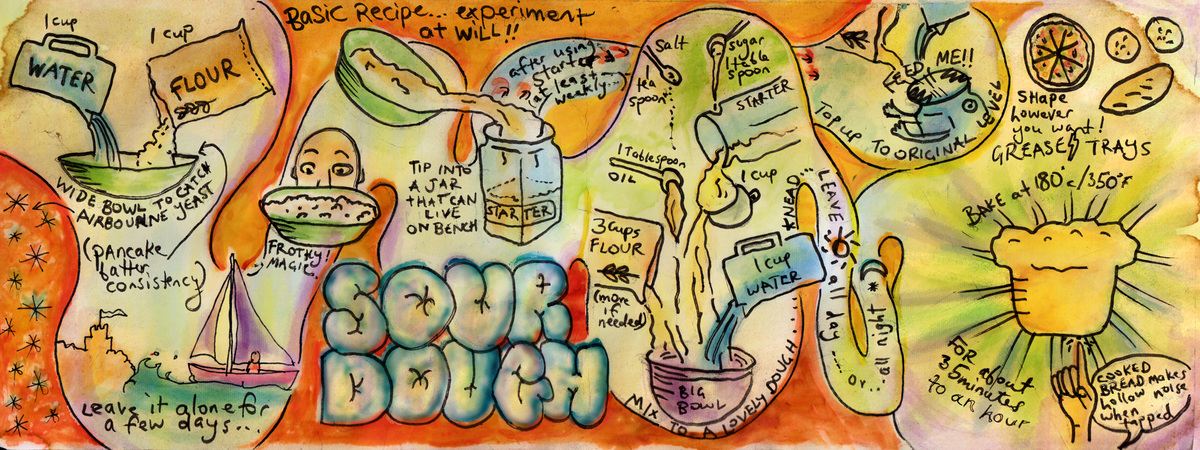 Basic Recipe... experiment
at will!!
1 cup
WATER
1 cup
FLOUR
WIDE BOWL TO CATCH
AIRBOURNE YEAST
(pancake
batter
consistency)
Leave it alone for
a few days...
FROTHY!
MAGIC
TIP INTO
A JAR
THAT CAN
LIVE
ON BENCH
STARTER
SOUR
DOUGH
after using
starter
(at least
weekly...)
FEED ME!!
TOP UP TO ORIGINAL LEVEL
Salt
tea
spoon
sugar
1 table
spoon
STARTER
1 cup
1 Tablespoon
OIL
3 cups
FLOUR
(more
if
needed)
1 cup
WATER
BIG
BOWL
MIX TO A LOVELY DOUGH
KNEAD
LEAVE
all day
.... or...
all night
SHAPE
however
you want!
GREASED TRAYS
BAKE at 180°c/350°F
FOR about
35 minutes
to an hour
COOKED
BREAD makes
hollow noise
when
tapped